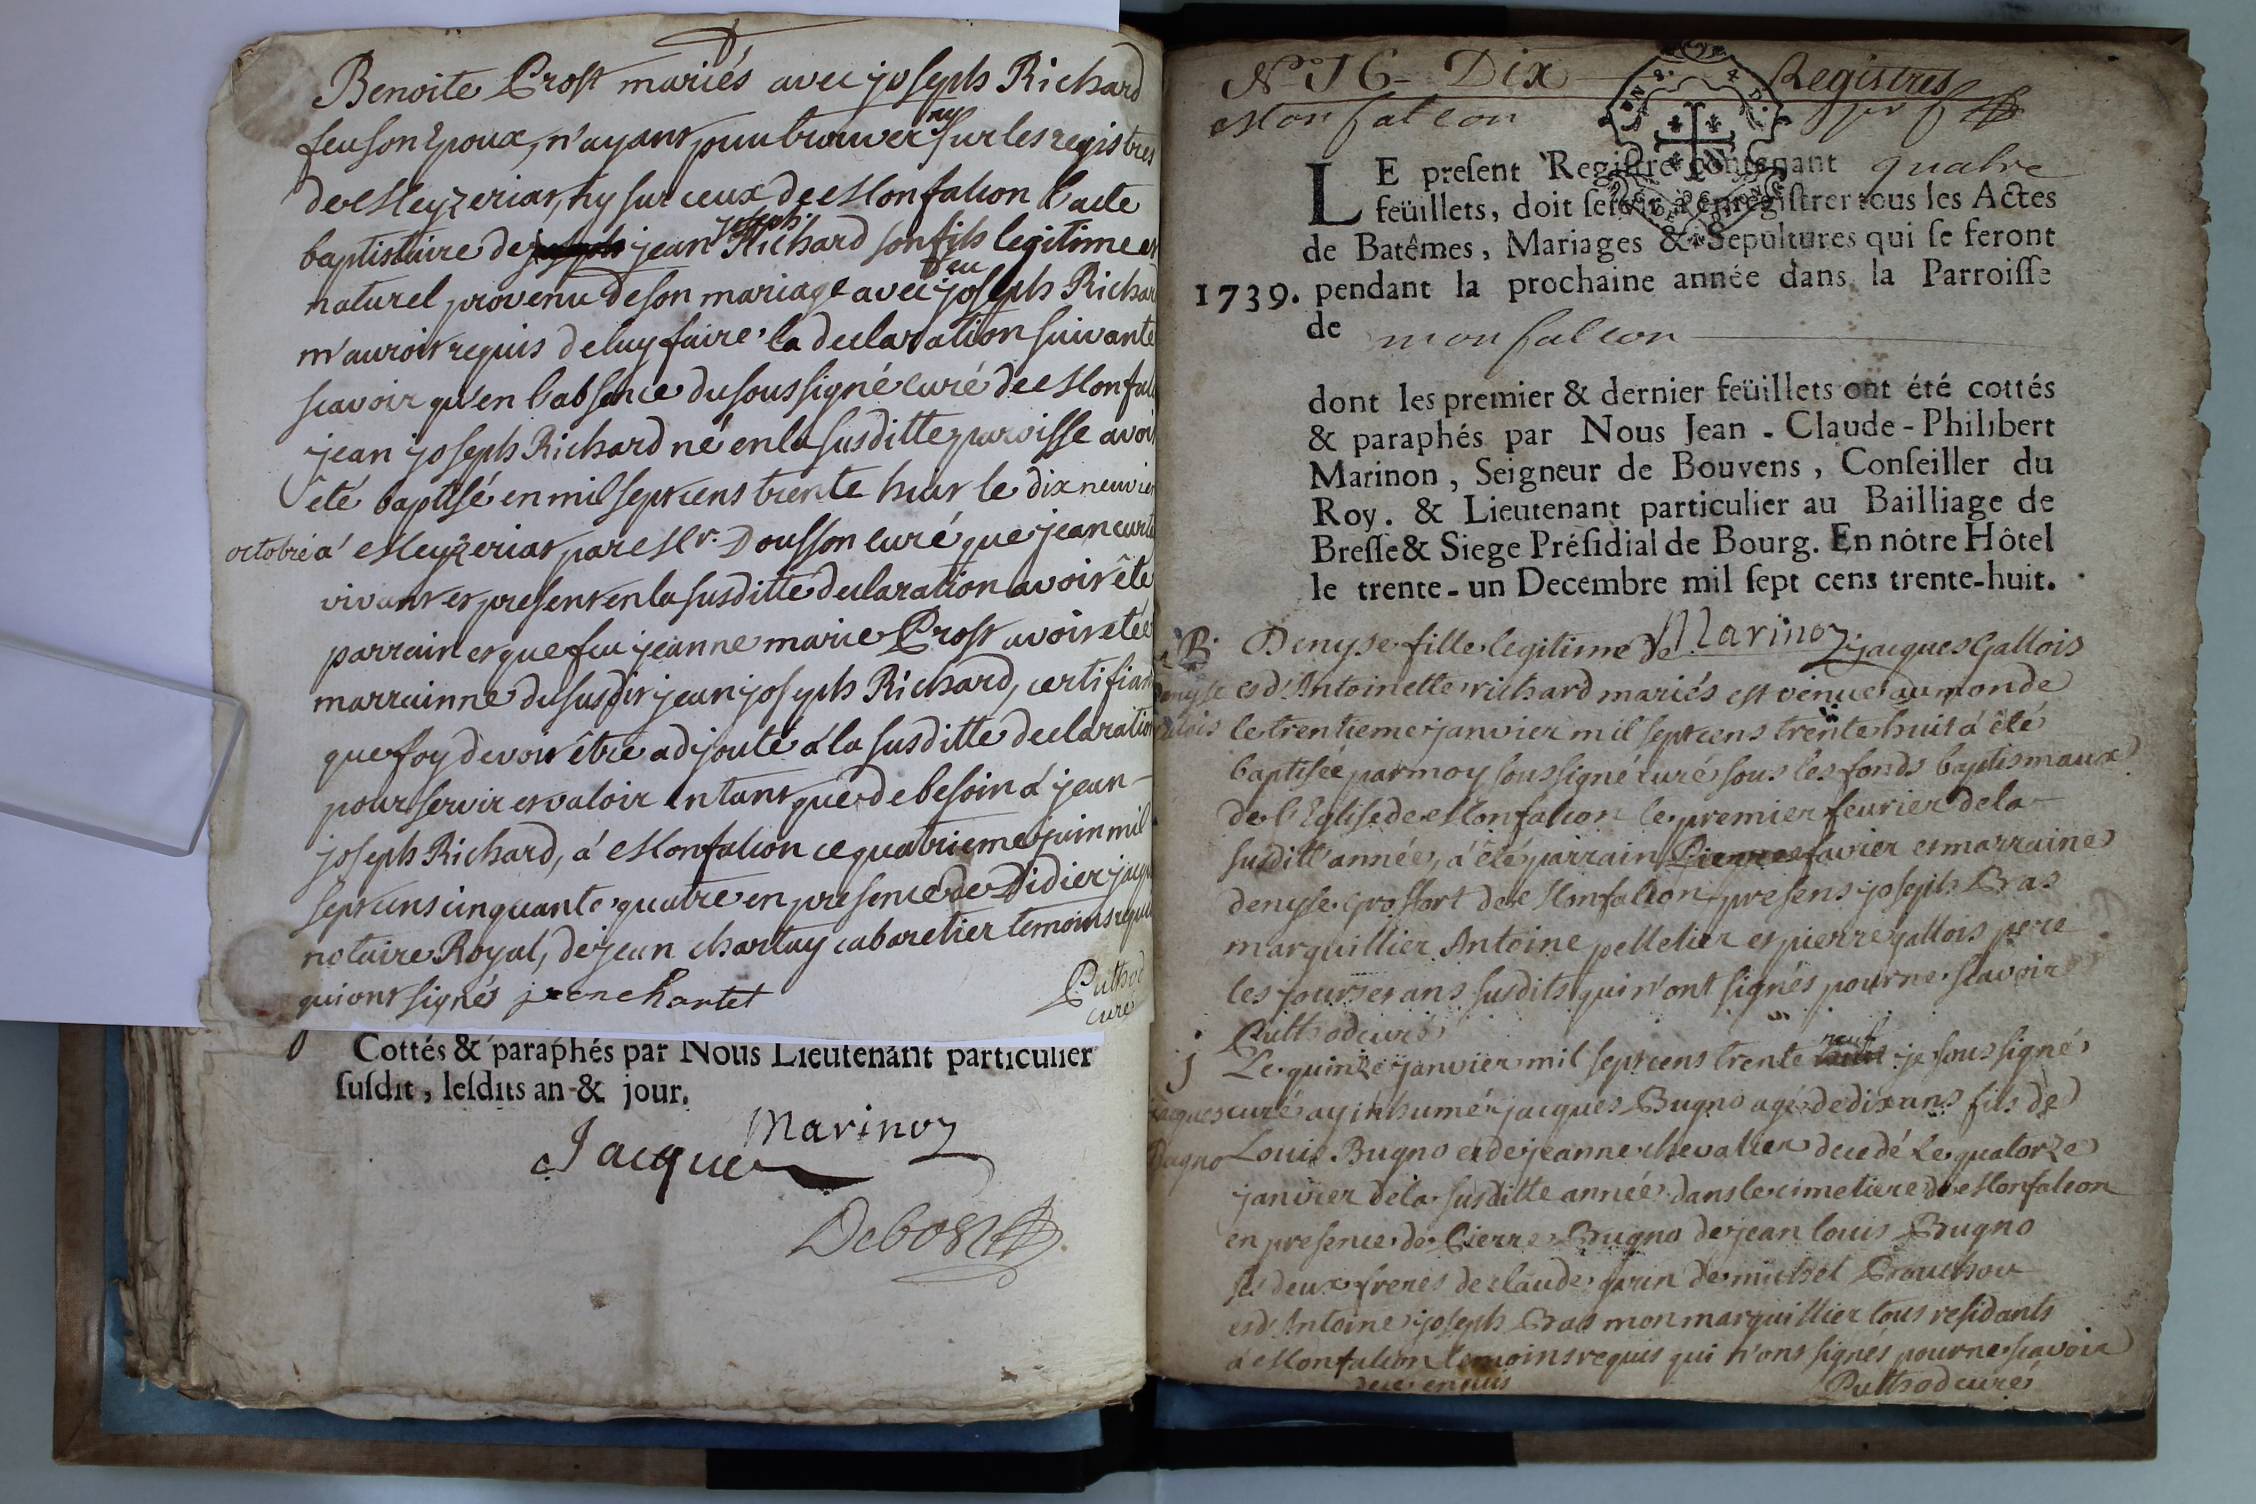 Benoite Prost mariés avec joseph Richard
feu son Epoux, n'ayant pu trouver ny sur les registres
de Meyzeriat, ny sur ceux de Monfalcon l'acte
baptistaire de jean joseph Richard son fils legitime et
naturel provenu de son mariage avec feu joseph Richard
m'auroit requis de luy faire la declaration suivante
scavoir qu'en l'absence du soussigné curé de Monfalc
jean joseph Richard né en la susditte paroisse avoi
été baptisé en mil sept cens trente huit le dix neuvie
octobre a' Meyzeriat par Mr. Dousson curé que jean curt
vivant et present en la susditte declaration avoir été
parrain et que feu jeanne marie Prost avoir etée
marrainne du susdit jean joseph Richard, certifiant
que foy devoir être adjouté a la susditte declaration
pour servir et valoir en tant que de besoin a' jean
joseph Richard, a' Monfalcon ce quatrieme juin mil
sept cens cinquante quatre en presence de Didier jacqu
notaire Royal, de jean chartay cabaretier temoins requi
qui ont signés jean chartet
Puthod
curé
Cottés & paraphés par Nous Lieutenant particulier
susdit, lesdits an & jour.
Marinon
Jacque
Debost
N° 16 Dix Registres
Monfalcon
LE present Registre contenant quatre
feüillets, doit servir à enregistrer tous les Actes
de Batêmes, Mariages & Sepultures qui se feront
1739. pendant la prochaine année dans la Parroisse
de monfalcon
dont les premier & dernier feüillets ont été cottés
& paraphés par Nous Jean-Claude-Philibert
Marinon, Seigneur de Bouvens, Conseiller du
Roy. & Lieutenant particulier au Bailliage de
Bresse & Siege Présidial de Bourg. En nôtre Hôtel
le trente-un Decembre mil sept cens trente-huit.
Marinon
B. Denyse fille legitime de jacques Gallois
et d'Antoinette richard mariés est venue au monde
le trentieme janvier mil sept cens trente huit a été
baptisée par moy soussigné curé sous les fonds baptismaux
de l'Eglise de Monfalcon le premier feurier de la
susditt'année, a été parrain Pierre favier et marraine
denyse grossort de Monfalcon presens joseph Bras
marguillier Antoine pelletier et pierre gallois pere
les jours et ans susdits qui n'ont signés pour ne scavoir
Puthod curé
j Le quinze janvier mil sept cens trente neuf je soussigné
jacques curé ay inhumé jacques Bugno agé de dix ans fils de
Bugno Louis Bugno et de jeanne chevalier decedé le quatorze
janvier de la susditte année dans le cimetiere de Monfalcon
en presence de Pierre Bugno de jean louis Bugno
ses deux freres de claude de michel
et d'Antoine joseph Bras mon marguillier tous residants
a Monfalcon temoins requis qui n'ont signés pour ne scavoir
de ce enquis Puthod curé